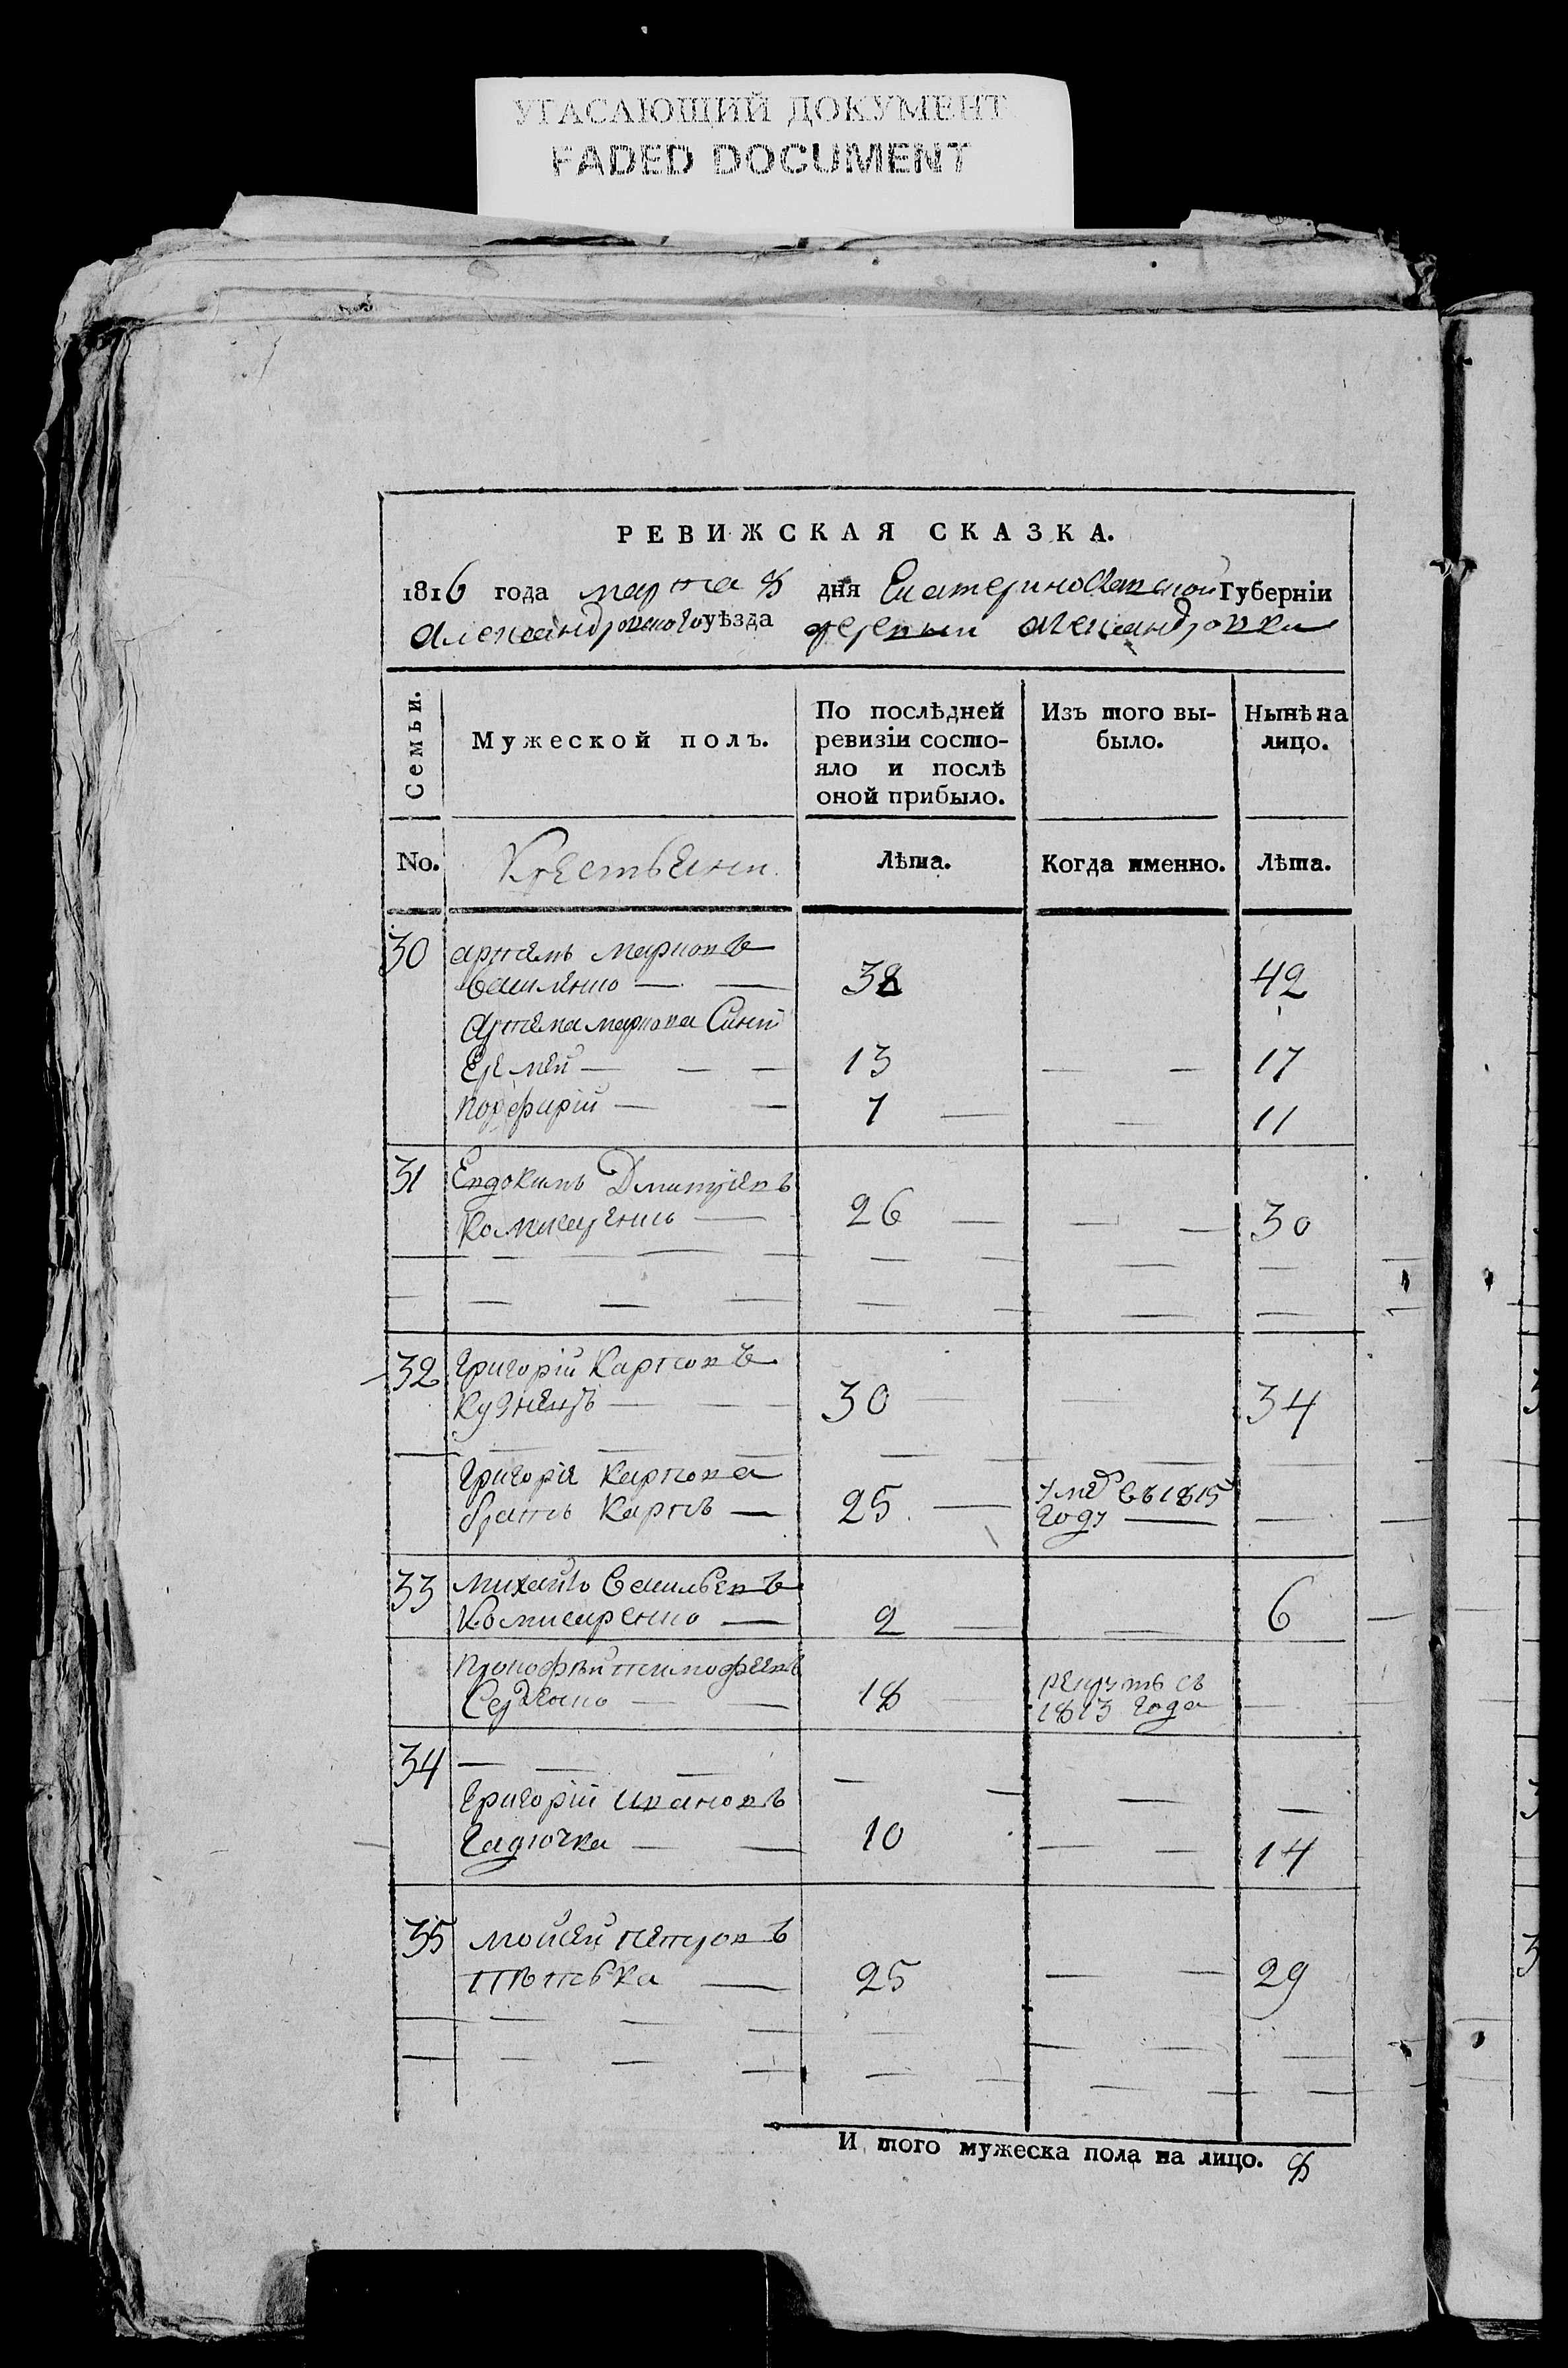 УГАСАЮЩИЙ ДОКУМЕНТ
FADED DOCUMENT
РЕВИЖСКАЯ СКАЗКА.
1816 года марта 8 дня Екатеринославской Губерніи
Александровского уѣзда деревни Александровки
Семьи. Мужеской полъ. По послѣдней ревизіи состояло и послѣ оной прибыло. Изъ того выбыло. Нынѣ на лицо.
No. Крестьяни Лѣта. Когда именно. Лѣта.
30 Артемъ Марковъ
Василенко — — 38 42
Артема Маркова Сини
Еремей — — — 13 — — 17
Порфирій — — 7 — — 11
31 Евдокимъ Дмитріевъ
— 26 — — — 30
32 Григорій Карповъ
Кузнецъ — — — 30 — — 34
Григорія Карпова
братъ Карпъ — 25 — умр въ 1815
году — —
33 Михайло Васильевъ
Комисаренко — 2 — — 6
Прокофій Тимофеевъ
— — 18 рекрутъ съ
1813 года —
34 — — — — — — —
Григорій Ивановъ
Гадючка — — 10 — — 14
35 Мойсей Петровъ
— 25 — — 29
И того мужеска пола на лицо. 8